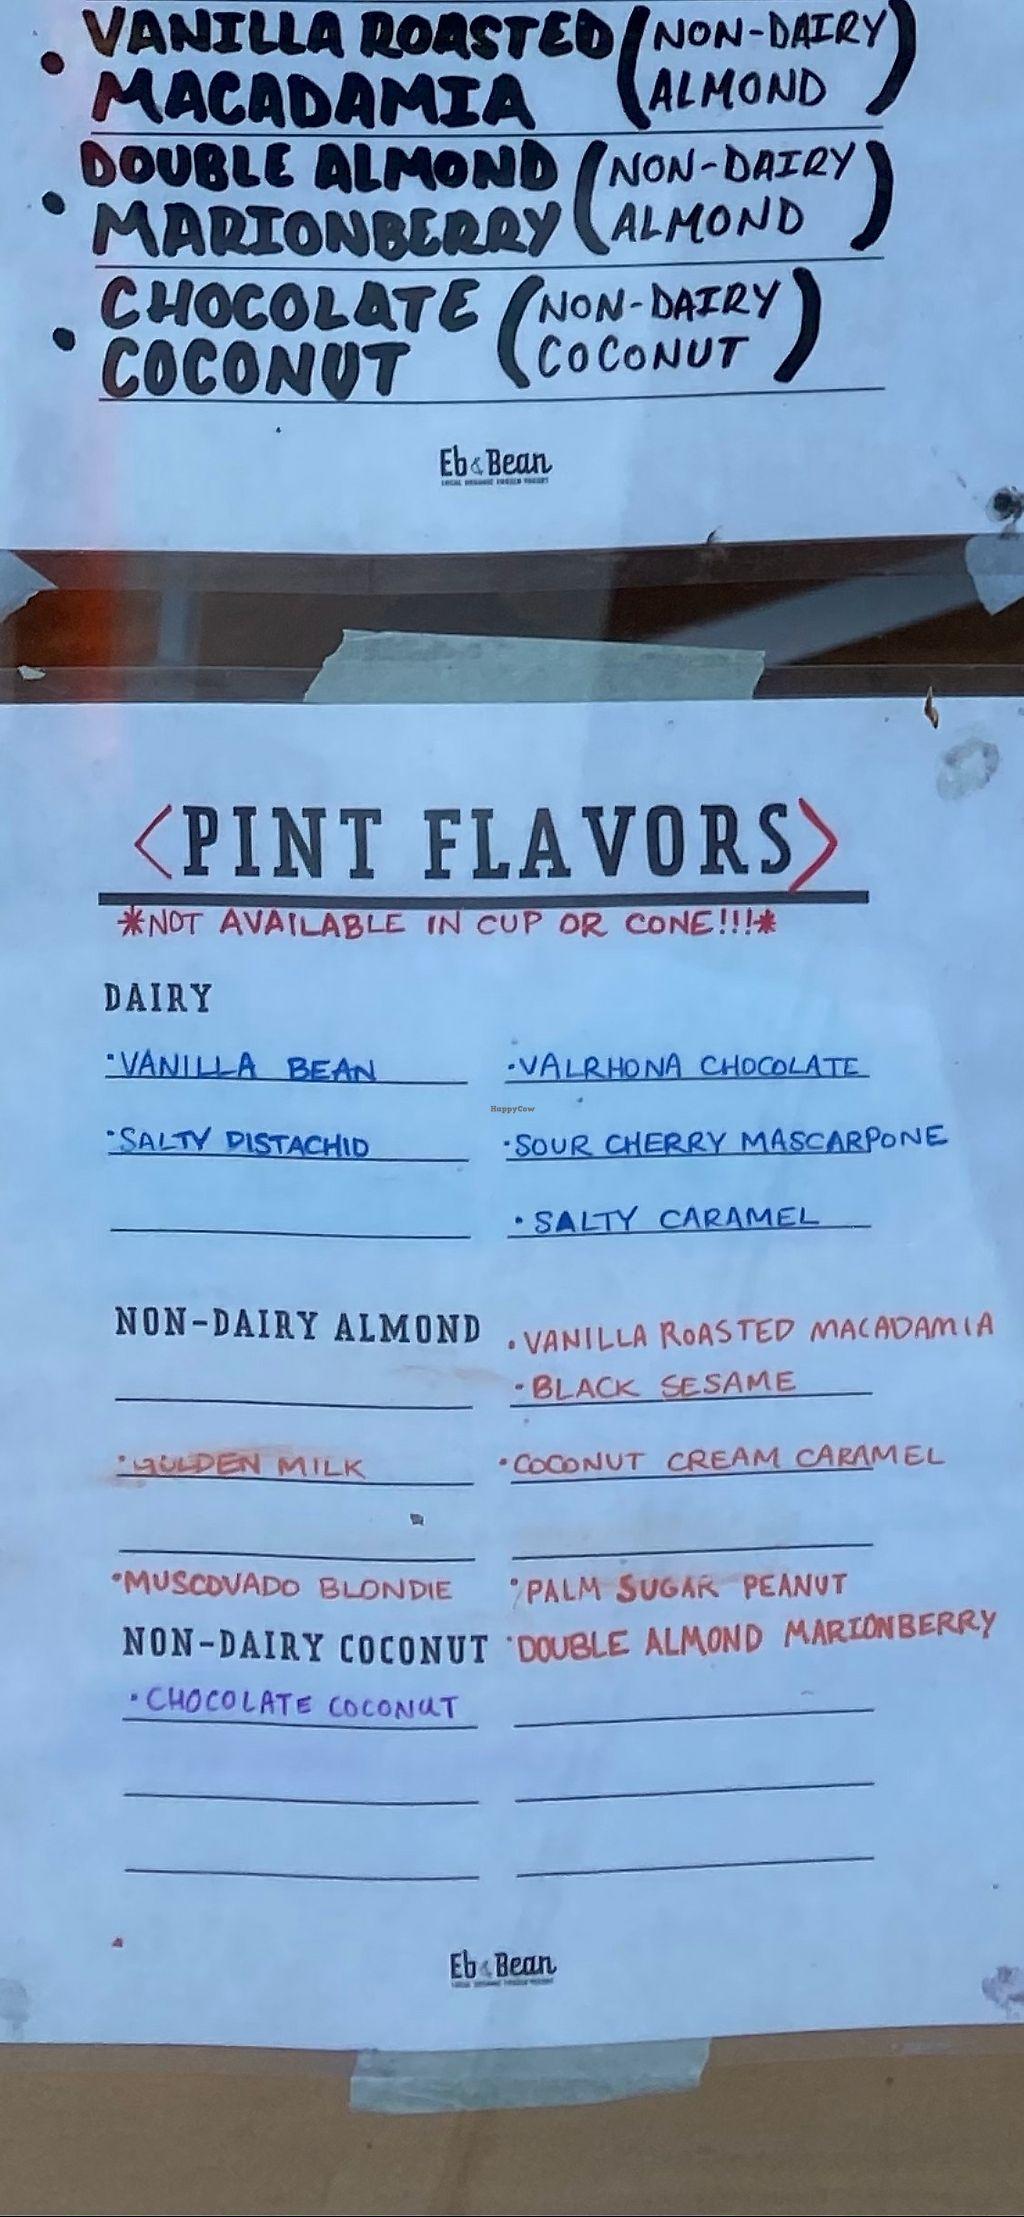 • VANILLA ROASTED (NON-DAIRY
MACADAMIA ALMOND)
• DOUBLE ALMOND (NON-DAIRY
MARIONBERRY ALMOND)
• CHOCOLATE (NON-DAIRY
COCONUT COCONUT)
Eb & Bean
LOCAL ORGANIC FROZEN YOGURT
<PINT FLAVORS>
*NOT AVAILABLE IN CUP OR CONE!!!*
DAIRY
•VANILLA BEAN •VALRHONA CHOCOLATE
HappyCow
•SALTY PISTACHIO •SOUR CHERRY MASCARPONE
•SALTY CARAMEL
NON-DAIRY ALMOND •VANILLA ROASTED MACADAMIA
•BLACK SESAME
•GOLDEN MILK •COCONUT CREAM CARAMEL
•MUSCOVADO BLONDIE •PALM SUGAR PEANUT
NON-DAIRY COCONUT •DOUBLE ALMOND MARIONBERRY
•CHOCOLATE COCONUT
Eb & Bean
LOCAL ORGANIC FROZEN YOGURT